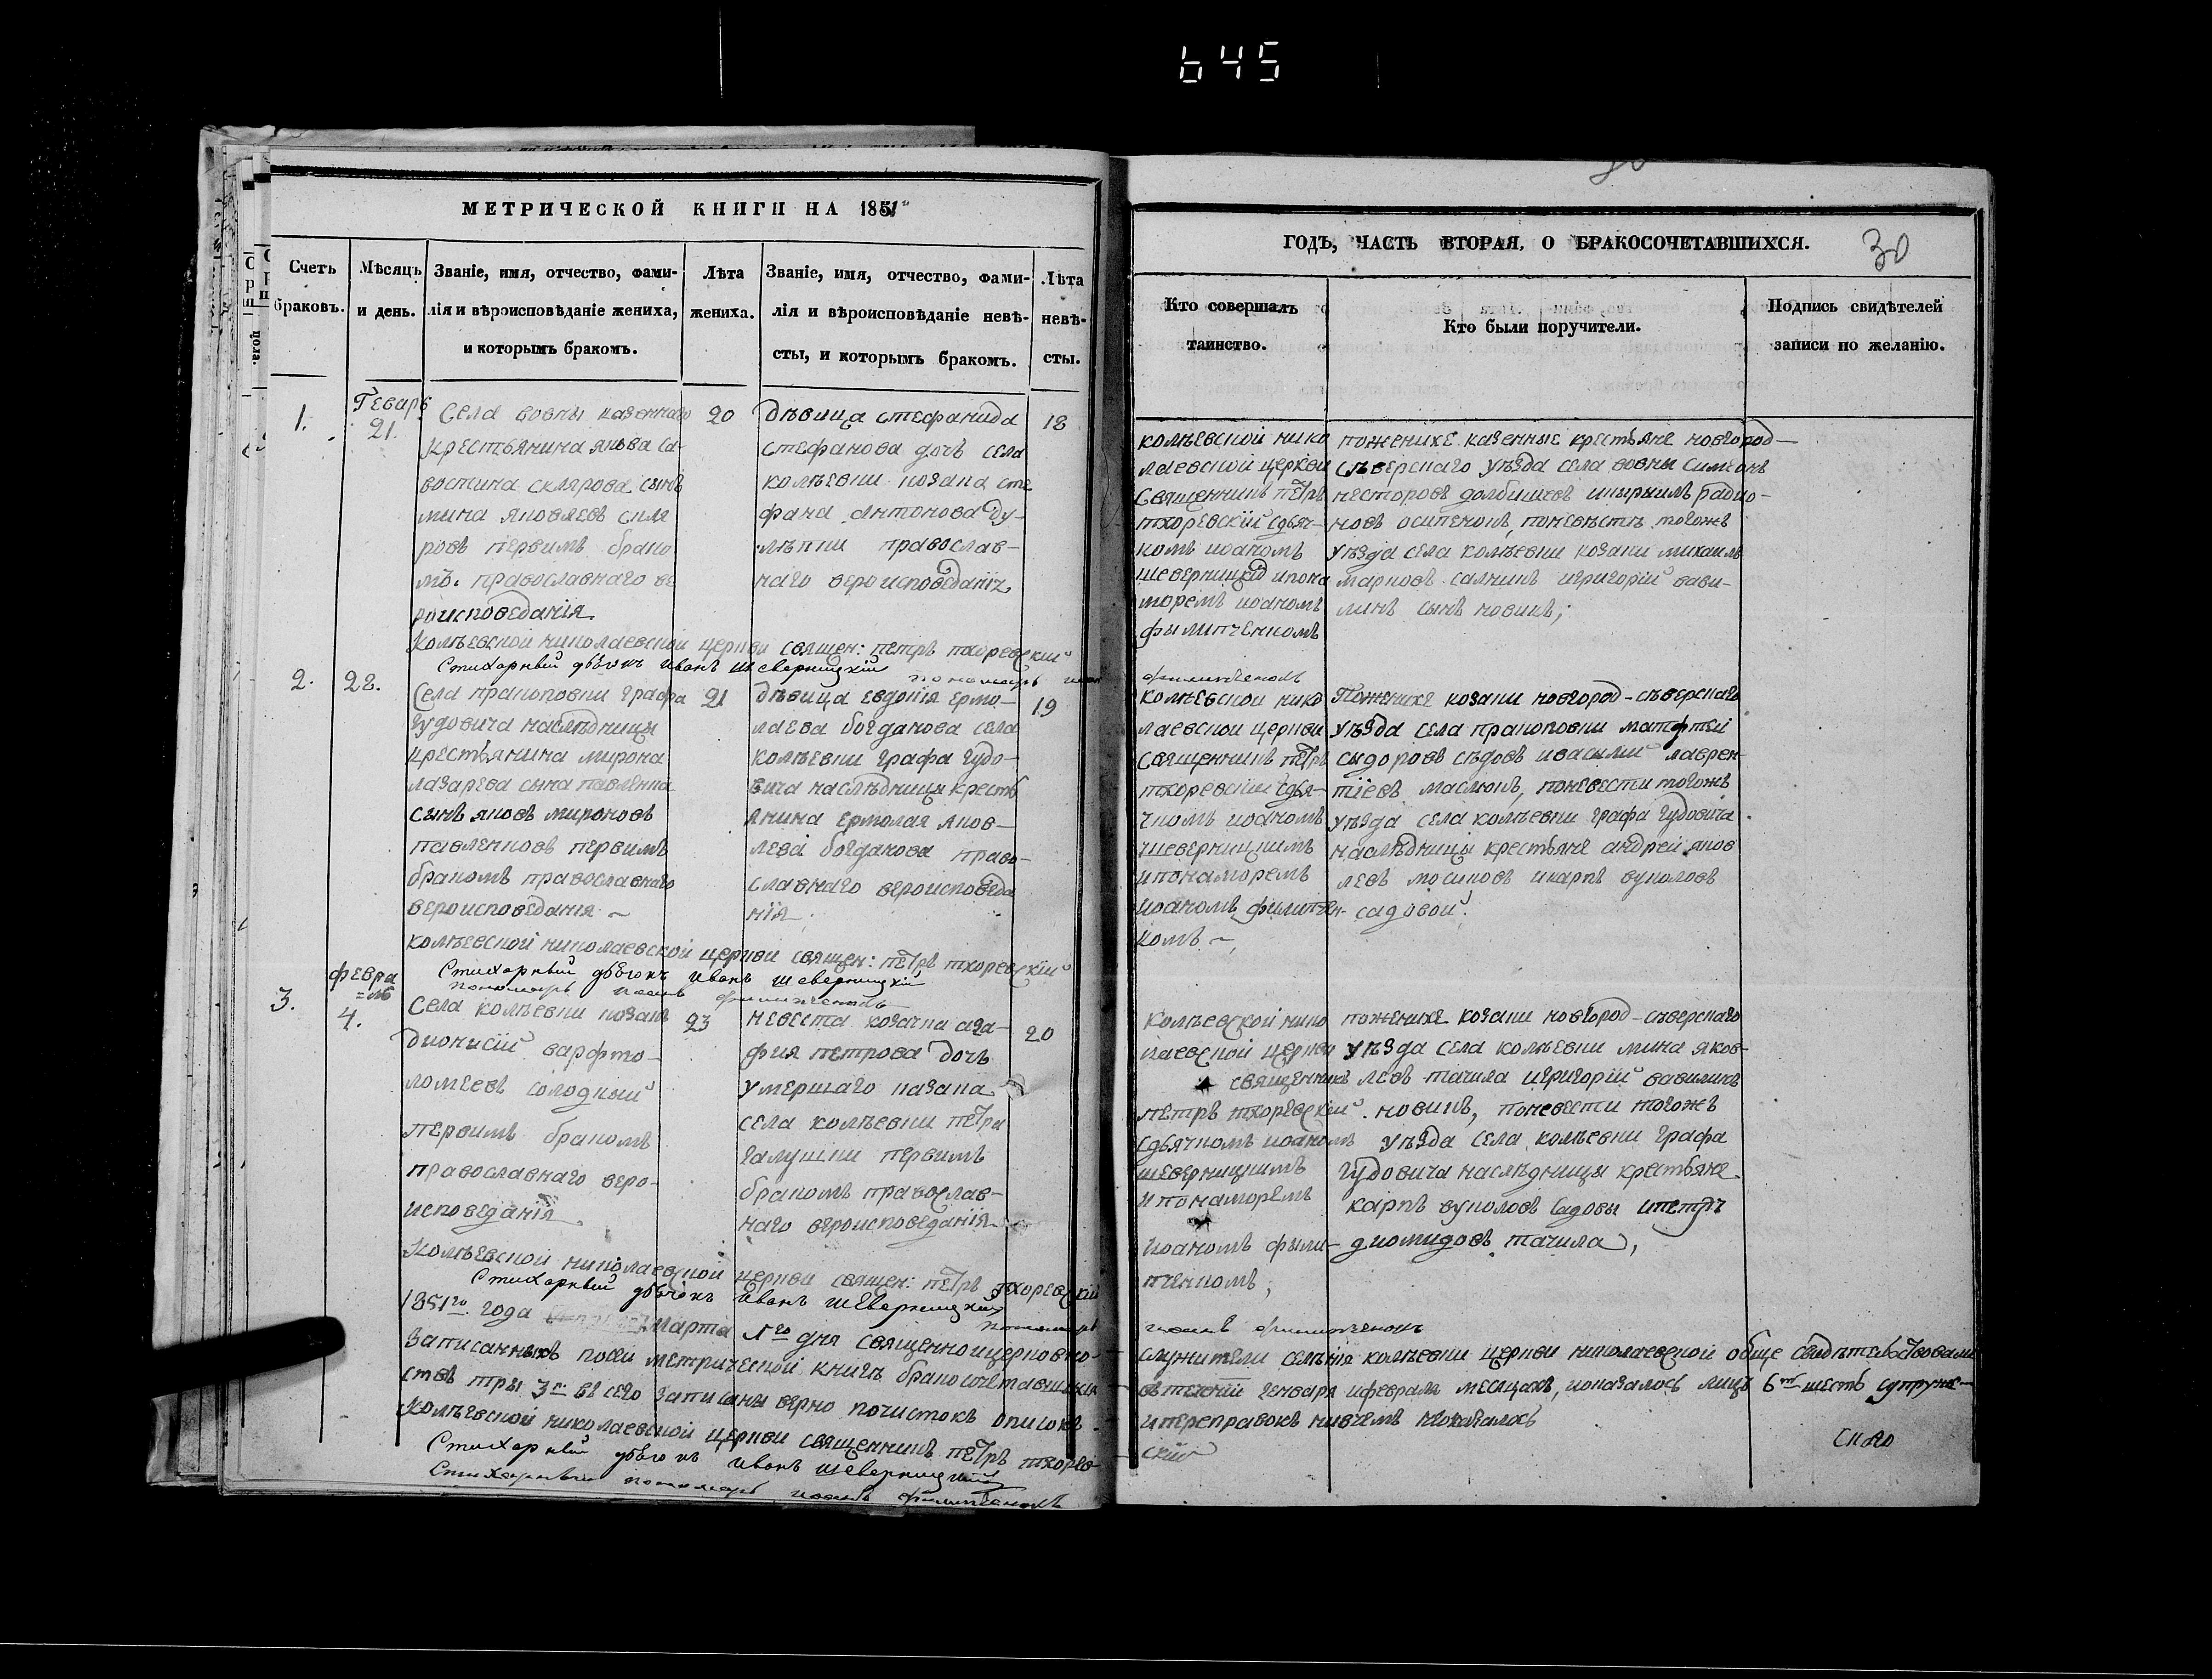 645
МЕТРИЧЕСКОЙ КНИГИ НА 1851
ГОДЪ, ЧАСТЬ ВТОРАЯ, О БРАКОСОЧЕТАВШИХСЯ.
30
Счетъ
браковъ.
Мѣсяцъ
и день.
Званіе, имя, отчество, фами-
лія и вѣроисповѣданіе жениха,
и которымъ бракомъ.
Лѣта
жениха.
Званіе, имя, отчество, фами-
лія и вѣроисповѣданіе невѣ-
сты, и которымъ бракомъ.
Лѣта
невѣ-
сты.
Кто совершалъ
таинство.
Кто были поручители.
Подпись свидѣтелей
записи по желанію.
1.
Генварь
21.
Села вовны казеннаго
крестьянина якова са-
востина склярова сынъ
мина яковлевъ скля
ровъ первимъ брако
мъ. православнаго ве
роисповедания
20
дѣвица стефанида
стефанова дочь села
колѣевки козака сте
фана антонова ду-
православ-
наго вероисповеданія
18
колѣевской нико
лаевской церкви
священникъ петръ
тхоревскій сдьяч-
комъ иоаномъ
шеверницкид ипона
моремъ иоаномъ
филипченкомъ
поженихе казенные крестьяне новгород-
сѣверскаго уѣзда села вовны симеонъ
несторовъ долбишевъ икирилъ радио-
новъ осипенокъ, поневѣстѣ тогожъ
уѣзда села колѣевки козаки михаилъ
марковъ салникъ игригорій вави-
линъ сынъ новикъ;
Колѣевской николаевской церкви священ: петръ тхоревскій
Стихарный дьячокъ Иванъ Шеверницкій
пономарь иоан
филипченокъ
2.
22.
Села прокоповки графа
гудовича наслѣдницы
крестьянина мирона
лазарева сына павленка
сынъ яковъ мироновъ
павленковъ первимъ
бракомъ православнаго
вероисповедания ~
21
дѣвица евдокія ермо-
лаева богданова села
колѣевки графа гудо-
вича наслѣдницы кресть
янина ермолая яков-
лева богданова право-
славнаго вероисповеда
нія
19
колѣевской нико
лаевской церкви
священникъ петръ
тхоревскій сдья-
чкомъ иоаномъ
шеверницкимъ
ипонаморемъ
иоаномъ филипчен-
комъ ~
Поженихе козаки новгород-сѣверскаго
уѣзда села прокоповки матфтей
сыдоровъ сѣдовъ ивасилий лаврен
тіевъ маслюкъ, поневести тогожъ
уѣзда села колѣевки графа гудовича
наслѣдницы крестьяне андрей яков
левъ мосиковъ икарпъ вуколовъ
садовой.
колѣевской николаевской церкви священ: петръ тхоревскій
Стихарный дьячокъ Иванъ Шеверницкій
пономарь иоанъ филипченокъ
3.
февра
=ль
4.
Села колѣевки козакъ
дионисій варфто-
ломеевъ солодкый
первимъ бракомъ
православнаго веро-
исповеданія.
23
невеста козачка ага-
фия петрова дочь
умершаго казака
села колѣевки петра
галушки первимъ
бракомъ православ-
наго вероисповеданія
20
Колѣевской нико
лаевской церкви
священникъ
петръ тхоревскій
сдьячкомъ иоаномъ
шеверницкимъ
ипонаморемъ
иоаномъ фили-
пченкомъ;
поженихе козаки новгород-сѣверскаго
уѣзда села колѣевки мина яков-
левъ тачила игригорій вавилинъ
новикъ, поневести тогожъ
уѣзда села колѣевки графа
гудовича наслѣдницы крестьяне
карпъ вуколовъ садовы ипетръ
диомидовъ тачила,
Колѣевской николаевской церкви священ: петръ тхоревскій
Стихарный дьячокъ Иванъ Шеверницкій
пономарь
иоанъ филипченокъ
1851го года марта 1го дня священноицерковно-
служители селѣнія колѣевки церкви николаевской обще свидѣтельствовали
записанныхъ посей метрической книгѣ бракосочетавшихся
втечении генваря ифевраля месяцахъ, ипоказалось лицъ 6ть шесть супруже-
ствъ тры 3и всего записаны верно почистокъ описокъ
ипереправокъ нивчемъ неоказалось
Колѣевской николаевской церкви священникъ петръ тхорев-
скій
Стихарный дьячокъ Иванъ Шеверницкій
Стихарный пономарь иоанъ филипченокъ